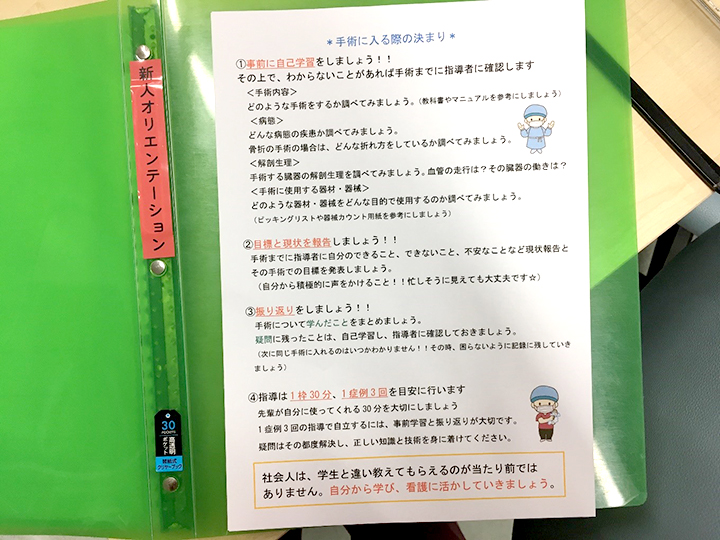 新人オリエンテーション
30
POCKETS
高透明
ポケット
クリヤーブック
＊手術に入る際の決まり＊
①事前に自己学習をしましょう！！
その上で、わからないことがあれば手術までに指導者に確認します
＜手術内容＞
どのような手術をするか調べてみましょう。（教科書やマニュアルを参考にしましょう）
＜病態＞
どんな病態の疾患か調べてみましょう。
骨折の手術の場合は、どんな折れ方をしているか調べてみましょう。
＜解剖生理＞
手術する臓器の解剖生理を調べてみましょう。血管の走行は？その臓器の働きは？
＜手術に使用する器材・器械＞
どのような器材・器械をどんな目的で使用するのか調べてみましょう。
（ピッキングリストや器械カウント用紙を参考にしましょう）
②目標と現状を報告しましょう！！
手術までに指導者に自分のできること、できないこと、不安なことなど現状報告と
その手術での目標を発表しましょう。
（自分から積極的に声をかけること！！忙しそうに見えても大丈夫です☆）
③振り返りをしましょう！！
手術について学んだことをまとめましょう。
疑問に残ったことは、自己学習し、指導者に確認しておきましょう。
（次に同じ手術に入れるのはいつかわかりません！！その時、困らないように記録に残していき
ましょう）
④指導は1枠30分、1症例3回を目安に行います
先輩が自分に使ってくれる30分を大切にしましょう
1症例3回の指導で自立するには、事前学習と振り返りが大切です。
疑問はその都度解決し、正しい知識と技術を身に着けてください。
社会人は、学生と違い教えてもらえるのが当たり前では
ありません。自分から学び、看護に活かしていきましょう。